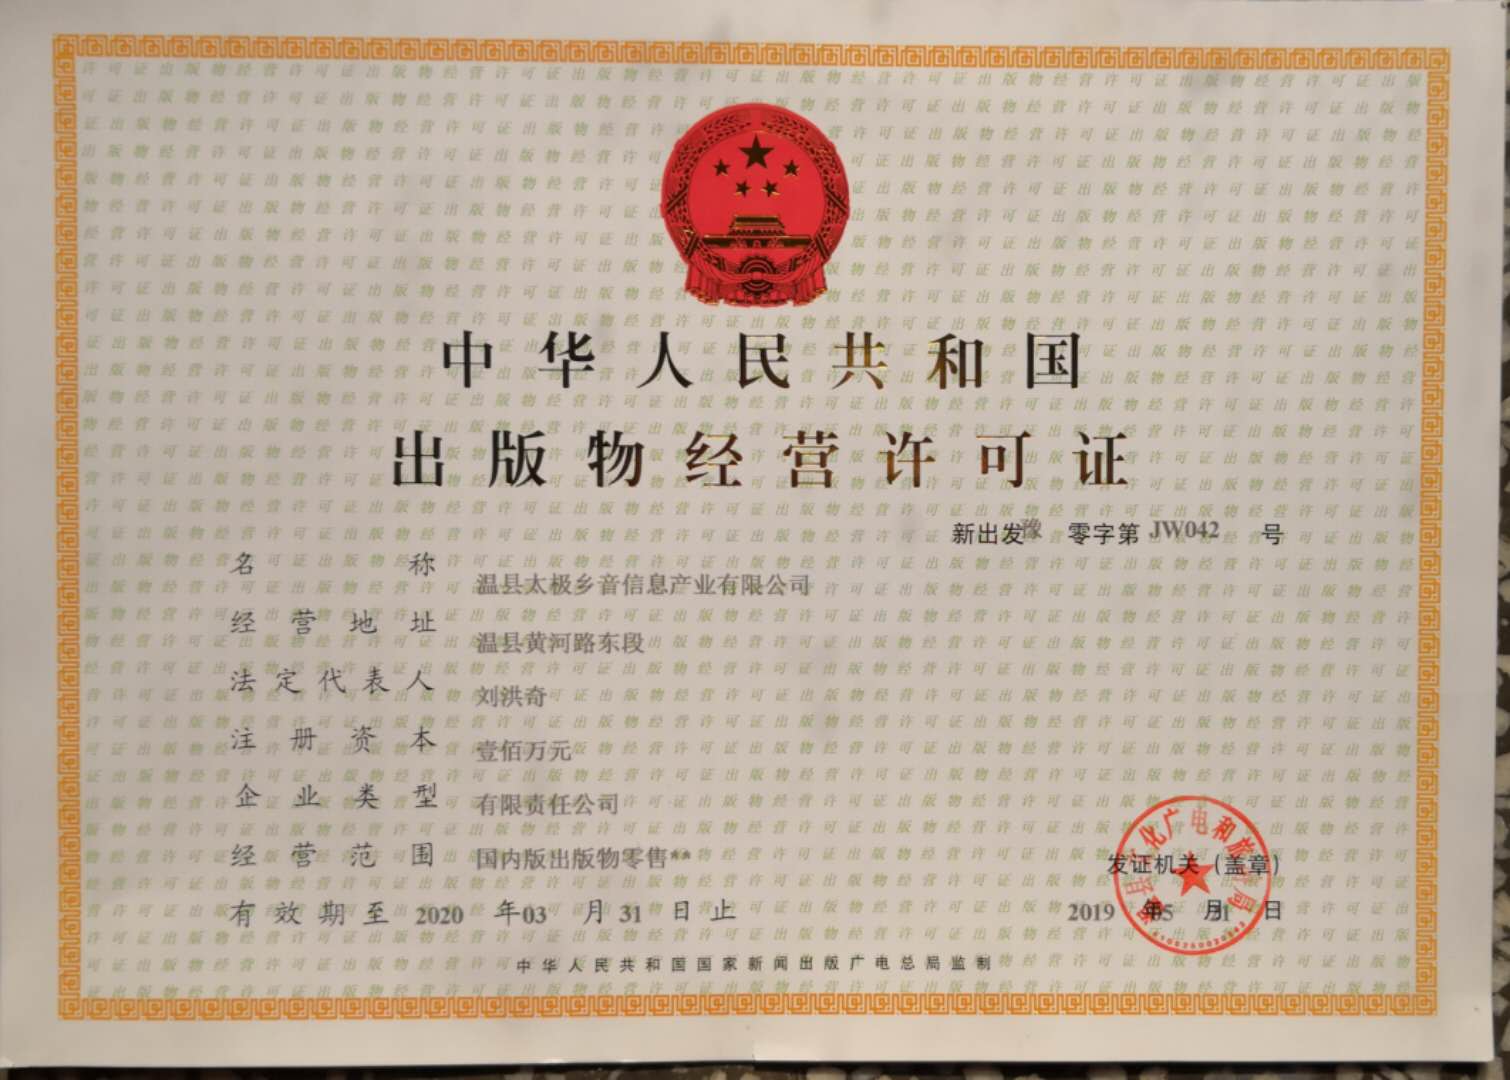 中华人民共和国
出版物经营许可证
新出发豫 零字第 JW042 号
名称 温县太极乡音信息产业有限公司
经营地址 温县黄河路东段
法定代表人 刘洪奇
注册资本 壹佰万元
企业类型 有限责任公司
经营范围 国内版出版物零售**
有效期至 2020 年03 月 31 日止
发证机关（盖章）
2019 年5 月31 日
中华人民共和国国家新闻出版广电总局监制